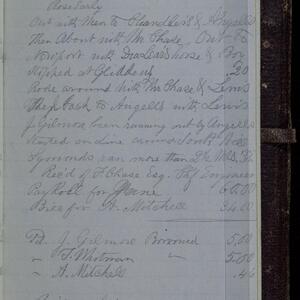 Rose Early
Out with them to Chandler's & Angells
then About with Mr Chase, Out to
Newport with Geo Lears horse & Boy
Stopped at Gliddens .30
Rode around with Mr Chase & Lewis
then back to Angells with Lewis
J Gilmore been running out by Angells
Started on Line around South Hill
Symonds ran more than
Rec'd of F Chase Esq. Engineer
Payroll for June 60.00
Bica for A. Mitchell 34.00
Pd J. Gilmore Borrowed 5.00
" T. Whitman " 5.00
" A. Mitchell